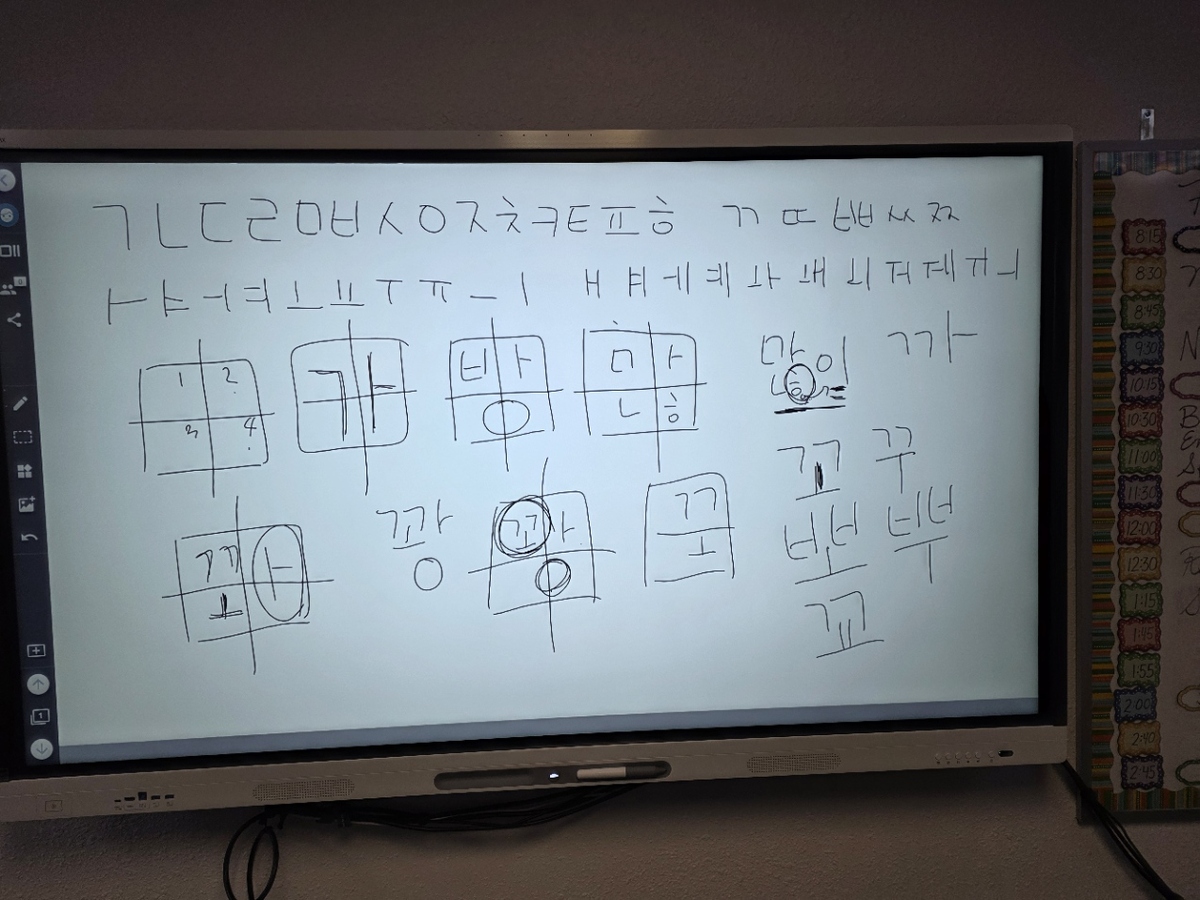 ㄱㄴㄷㄹㅁㅂㅅㅇㅈㅊㅋㅌㅍㅎ ㄲㄸㅃㅆㅉ
ㅏㅑㅓㅕㅗㅛㅜㅠㅡㅣ ㅐㅒㅔㅖㅘㅙㅚㅝㅞㅟㅢ
1 2 가 바 마 많이 까
3 4 ㅇ ㄴㅎ
꼬 꾸
꽈 꽝 꽈 꼬 뽀 뿌
ㅇ
꾜
8:15
8:30
8:45
9:30
10:15
10:30
11:00
11:30
12:00
12:30
1:15
1:45
1:55
2:00
2:40
2:45